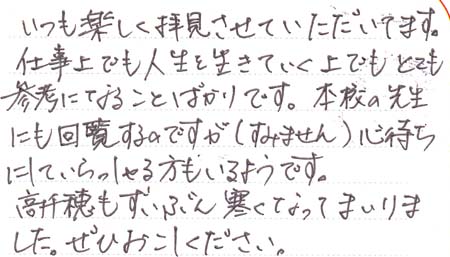 いつも楽しく拝見させていただいてます。
仕事上でも人生を生きていく上でもとても
参考になることばかりです。本校の先生
にも回覧するのですが(すみません)心待ち
にしていらっしゃる方もいるようです。
高千穂もずいぶん寒くなってまいりま
した。ぜひおこしください。